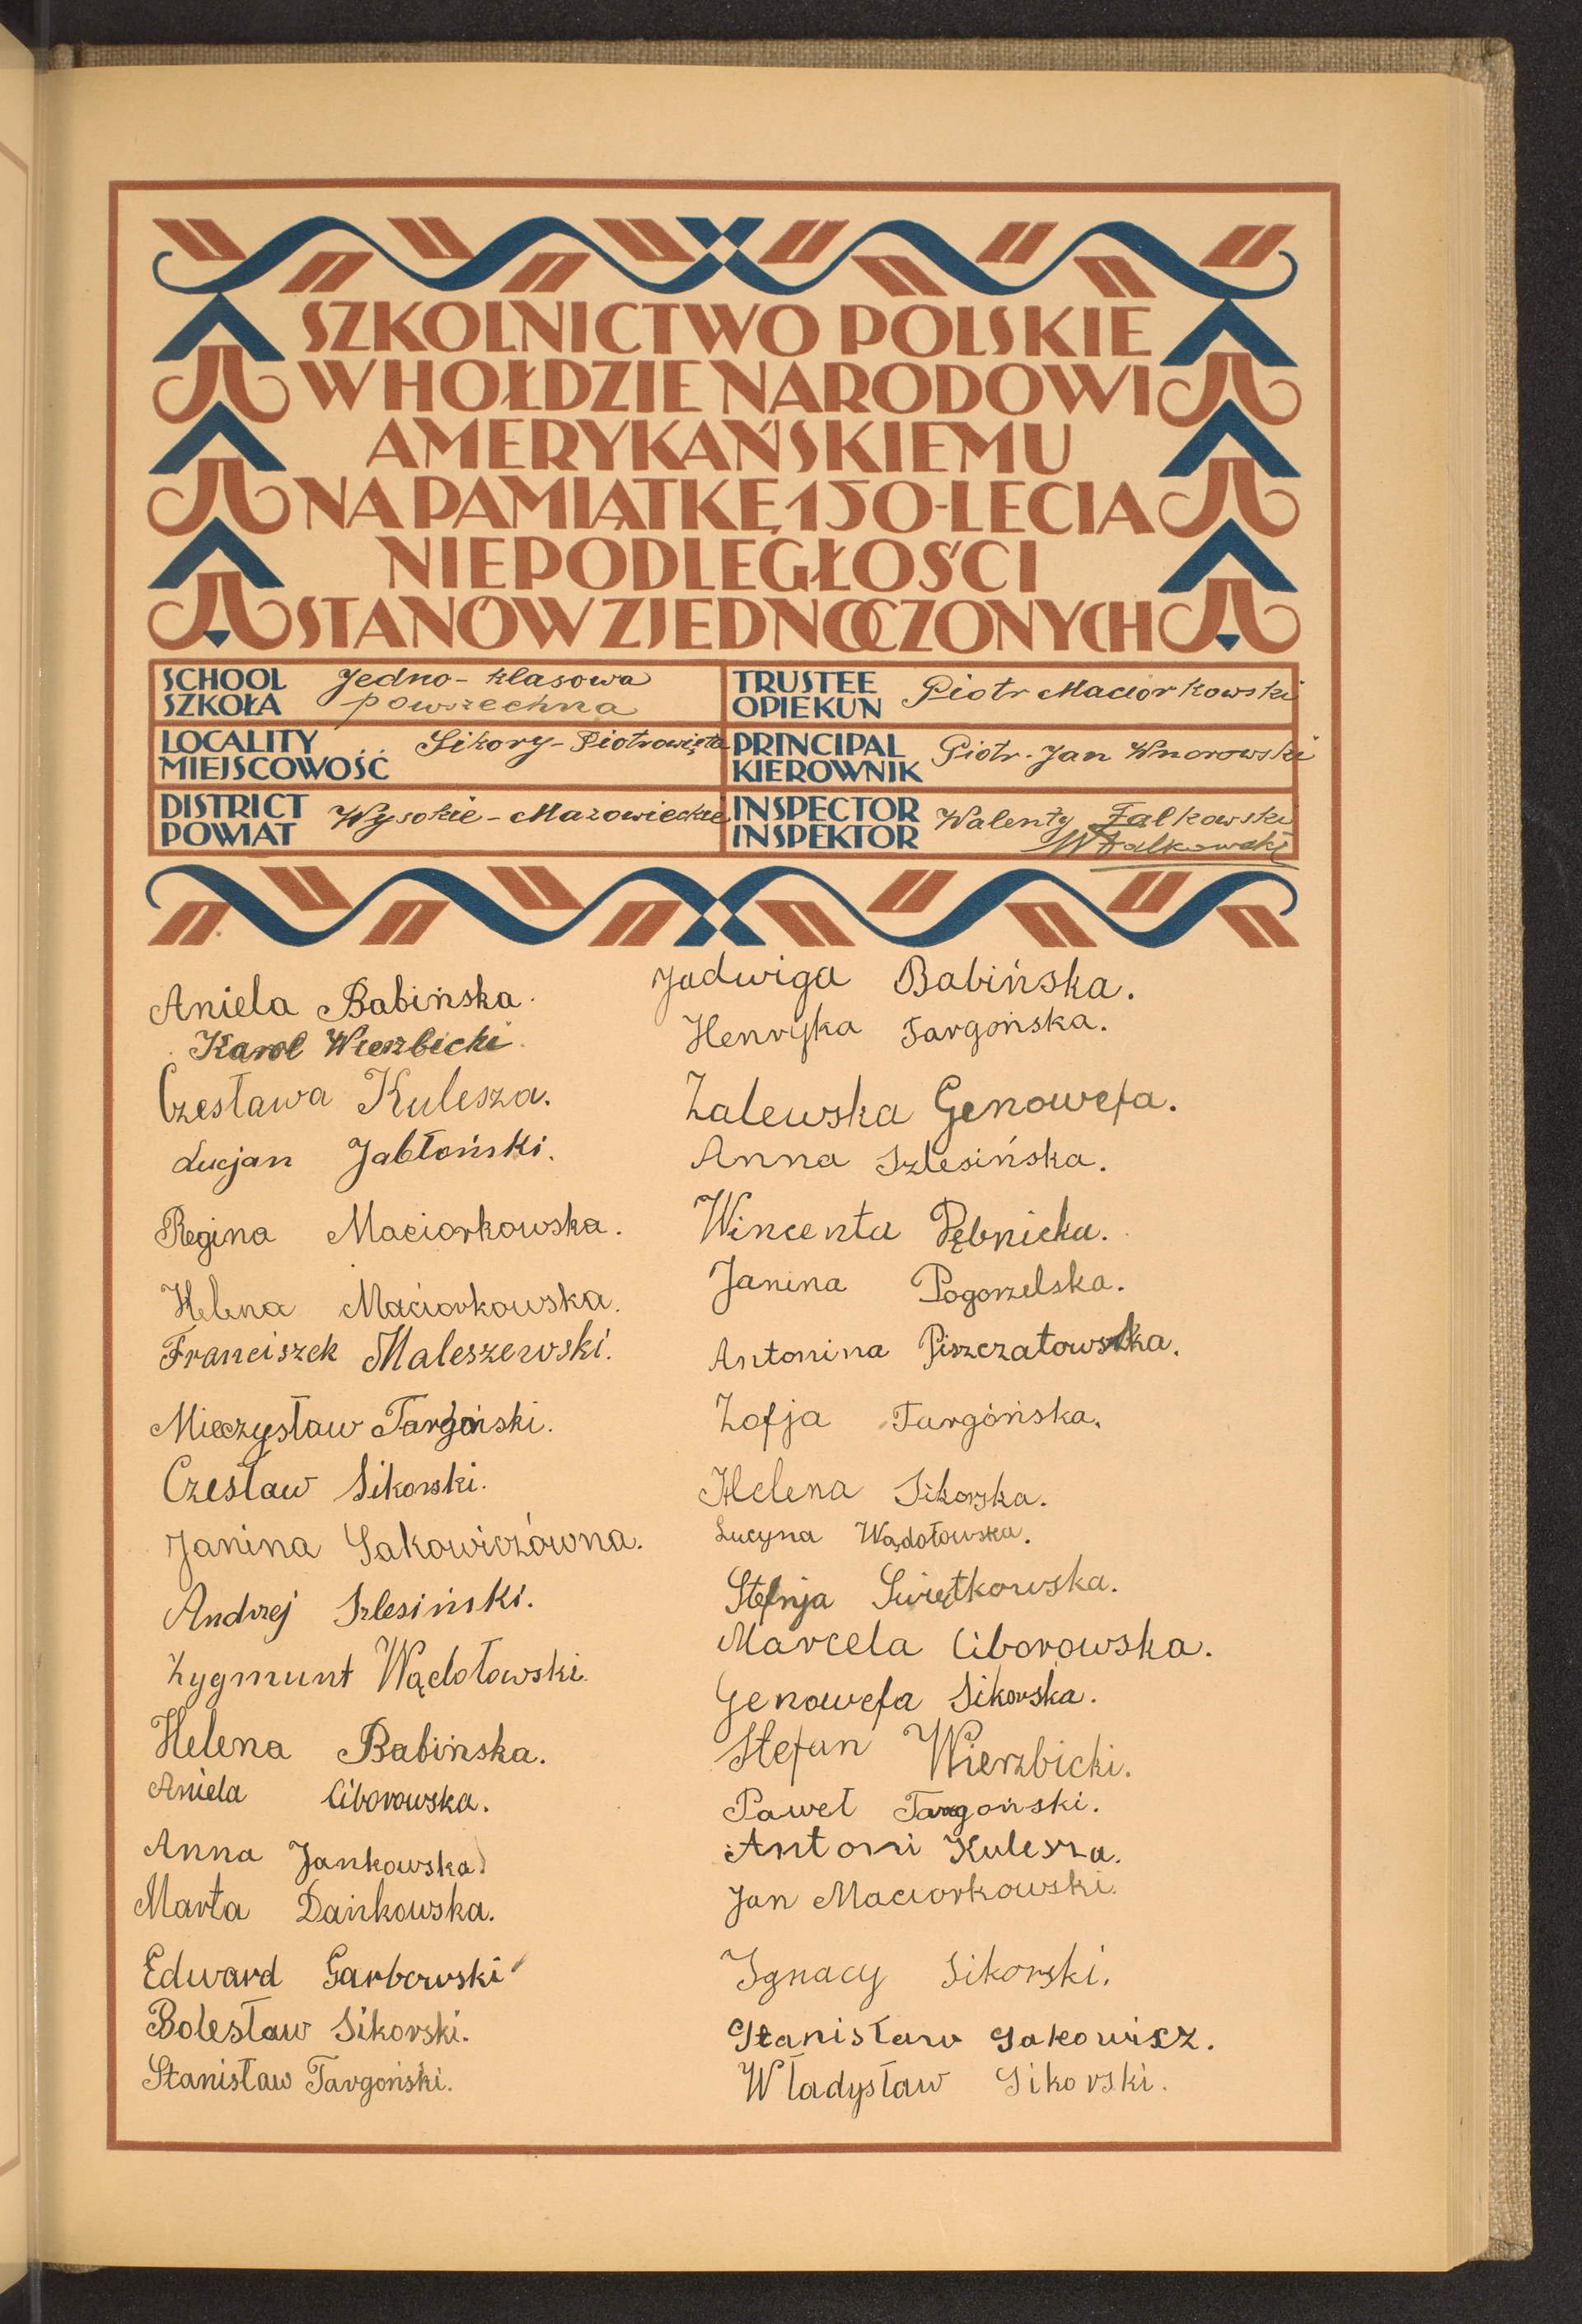 SZKOLNICTWO POLSKIE
W HOŁDZIE NARODOWI
AMERYKAŃSKIEMU
NA PAMIĄTKĘ 150-LECIA
NIEPODLEGŁOŚCI
STANÓW ZJEDNOCZONYCH
SCHOOL
SZKOŁA
Jedno-klasowa
powszechna
TRUSTEE
OPIEKUN
Piotr Maciorkowski
LOCALITY
MIEJSCOWOŚĆ
Sikory-Piotrowięta
PRINCIPAL
KIEROWNIK
Piotr-Jan Wnorowski
DISTRICT
POWIAT
Wysokie-Mazowieckie
INSPECTOR
INSPEKTOR
Walenty Falkowski
WFalkowski
Aniela Babińska.
Karol Wierzbicki.
Czesława Kulesza.
Lucjan Jabłoński.
Regina Maciorkowska.
Helena Maciorkowska.
Franciszek Maleszewski.
Mieczysław Targoński.
Czesław Sikorski.
Janina Sakowiczówna.
Andrzej Szlesiński.
Zygmunt Wądołowski.
Helena Babińska.
Aniela Ciborowska.
Anna Jankowska.
Marta Dańkowska.
Edward Garbowski
Bolesław Sikorski.
Stanisław Targoński.
Jadwiga Babińska.
Henryka Targońska.
Zalewska Genowefa.
Anna Szlesińska.
Wincenta Dębnicka.
Janina Pogorzelska.
Antonina Piszczatowska.
Zofja Targońska.
Helena Sikorska.
Lucyna Wądołowska.
Stefnja Świętkowska.
Marcela Ciborowska.
Genowefa Sikorska.
Stefan Wierzbicki.
Paweł Targoński.
Antoni Kulesza.
Jan Maciorkowski.
Ignacy Sikorski.
Stanisław Sakowicz.
Władysław Sikorski.